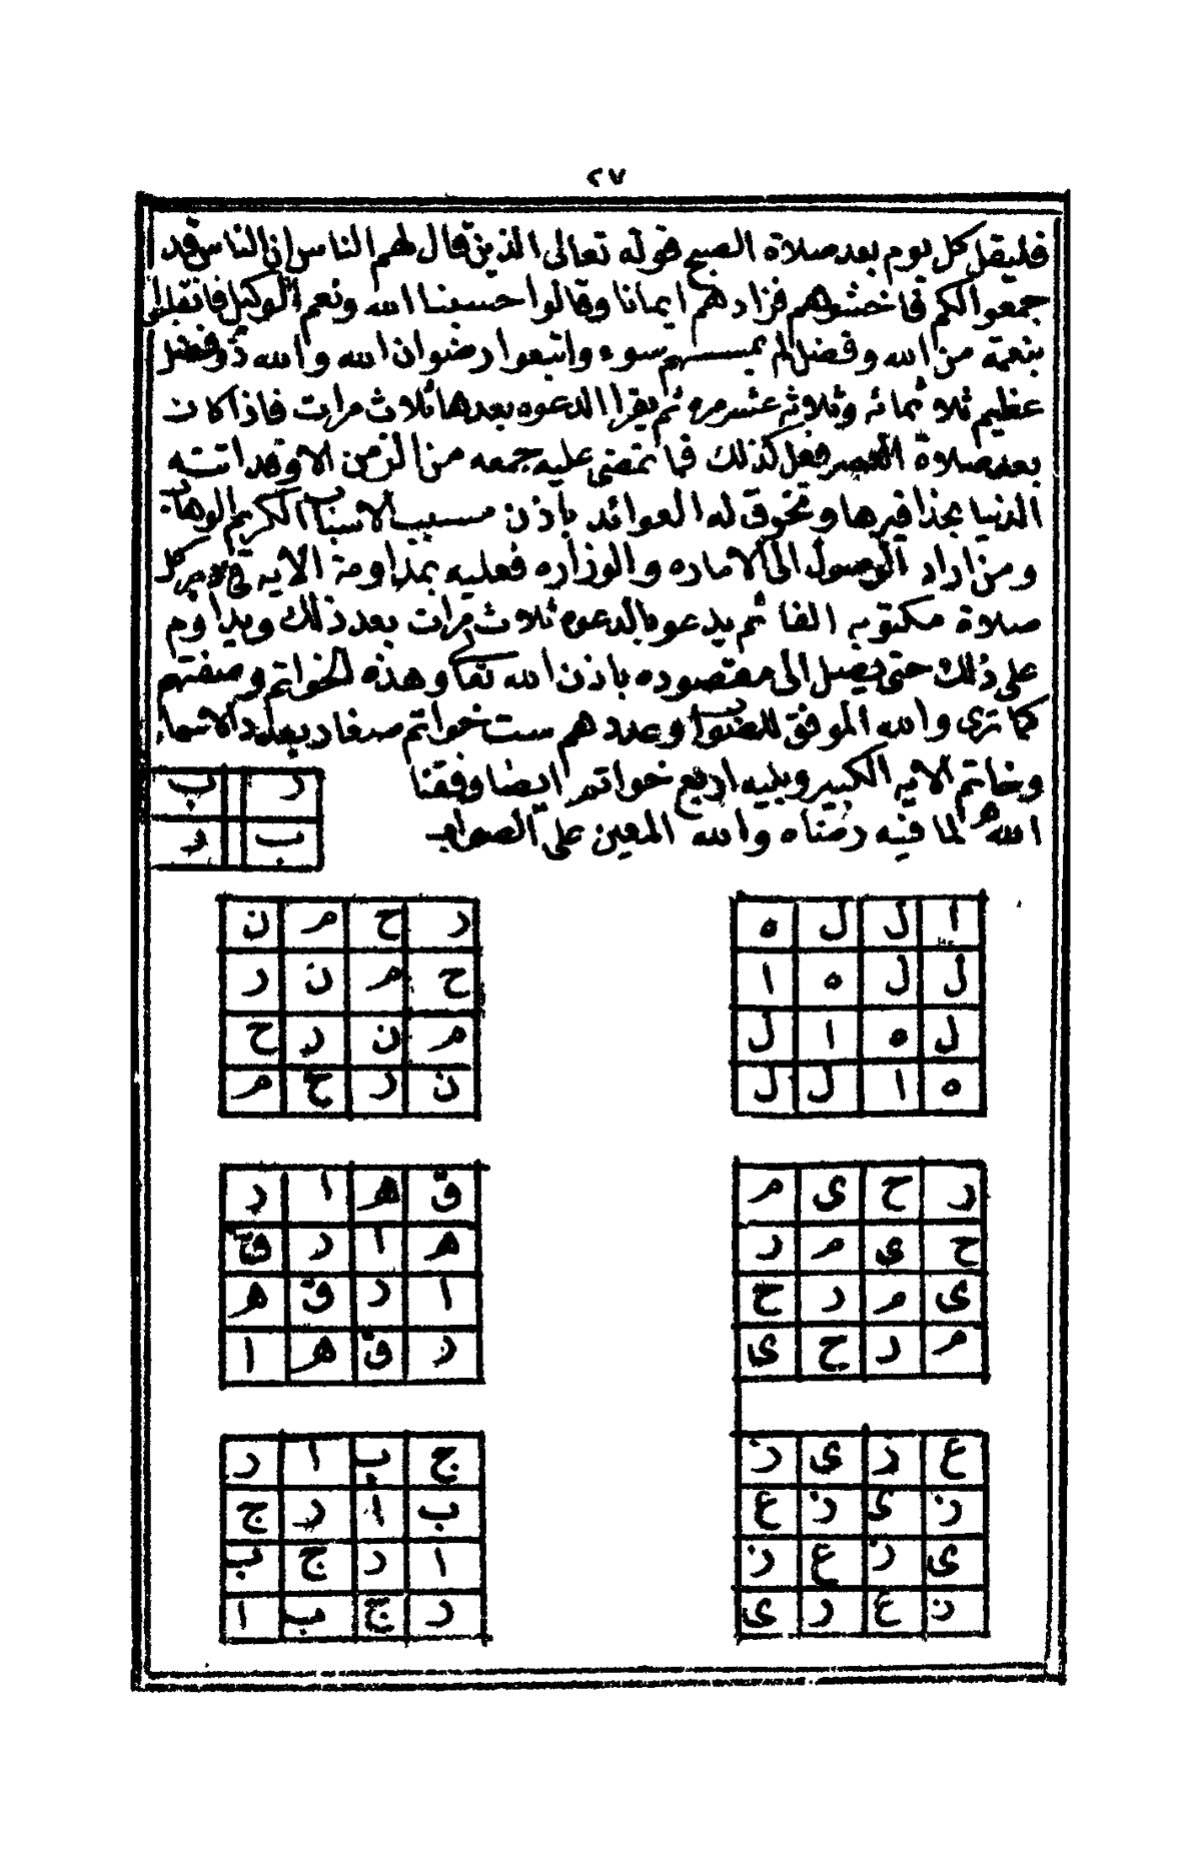 ٢٧
فليقل كل يوم بعد صلاة الصبح قوله تعالى الذين قال لهم الناس ان الناس قد
جمعوا لكم فاخشوهم فزادهم ايمانا وقالوا حسبنا الله ونعم الوكيل فانقلبوا
بنعمة من الله وفضل لم يمسسهم سوء واتبعوا رضوان الله والله ذو فضل
عظيم ثلاثمائه وثلاثه عشر مره ثم يقرا الدعوه بعدها ثلاث مرات فاذا كان
بعد صلاة العصر فعل كذلك فما تمضى عليه جمعه من الزمن الا وقد اتته
الدنيا بحذافيرها وتخرق له العوائد باذن مسبب الاسباب الكريم الوهاب
ومن اراد الوصول الى الاماره والوزاره فعليه بمداومة الايه فى دبر كل
صلاة مكتوبه الفا ثم يدعو بالدعوه ثلاث مرات بعد ذلك ويداوم
على ذلك حتى يصل الى مقصوده باذن الله تعا وهذه الخواتم وصفتهم
كما ترى والله الموفق للصواب وعددهم ست خواتم صغار بعدد الاسماء
وخاتم الايه الكبير ويليه اربع خواتم ايضا وفقنا
الله لما فيه رضاه والله المعين على الصواب
ر ب
ب ر
ا ل ل ه
ل ل ه ا
ل ه ا ل
ه ا ل ل
ر ح م ن
ح م ن ر
م ن ر ح
ن ر ح م
ر ح ى م
ح ى م ر
ى م ر ح
م ر ح ى
ق ه ا ر
ه ا ر ق
ا ر ق ه
ر ق ه ا
ع ز ى ز
ز ى ز ع
ى ز ع ز
ز ع ز ى
ج ب ا ر
ب ا ر ج
ا ر ج ب
ر ج ب ا